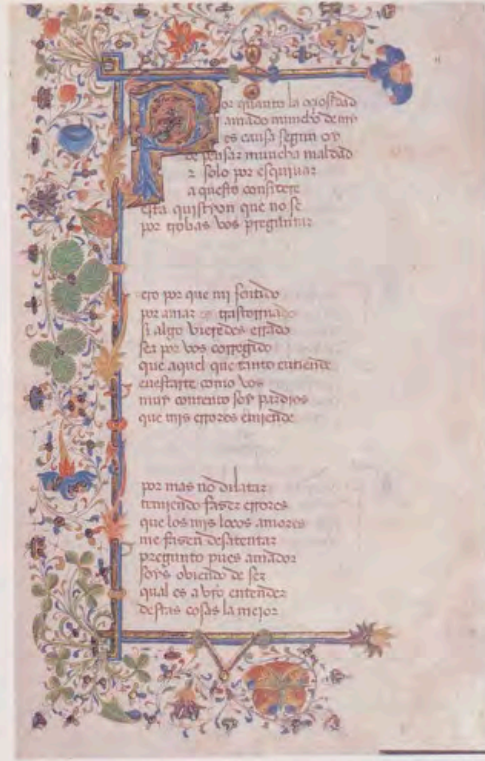 Por quanto la ociosidad
amado muncho de my
es causa segun oy
de pensar muncha maldad
z solo por esquiuar
a questo consirere
esta quistyon que no se
por trobas vos preguntar
ero por que mi sentido
por amar es trastornado
si algo vieredes errado
sea por vos corregido
que aquel que tanto entiende
enestarte como vos
muy contento soy pardios
que mis errores emiende
por mas no dilatar
temiendo faser errores
que los mis locos amores
me fasen desatentar
pregunto pues amador
soys obiendo de ser
qual es a vro entender
destas cosas la mejor